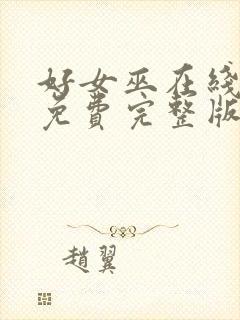 好女巫在线
免费完整版
趙翼